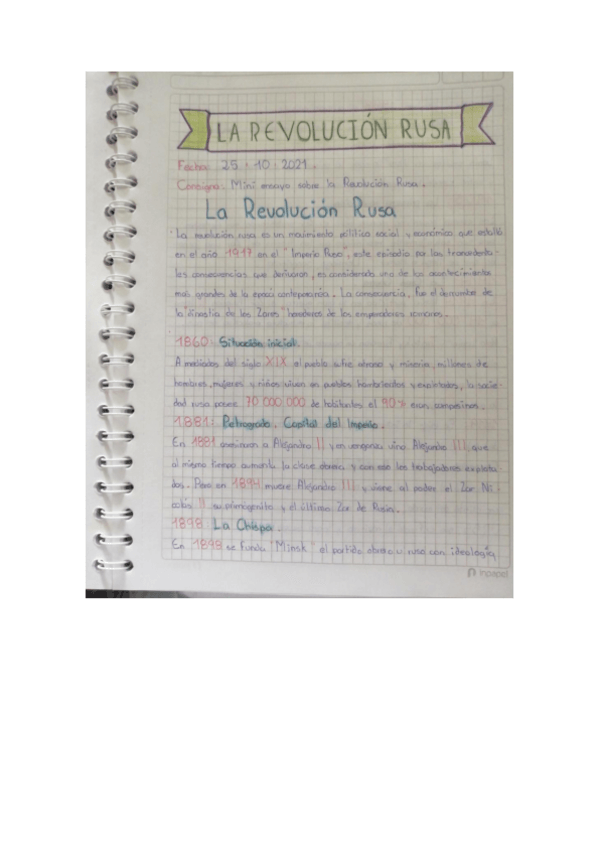 LA REVOLUCIÓN RUSA
Fecha: 25 · 10 · 2021.
Consigna: Mini ensayo sobre la Revolución Rusa.
La Revolución Rusa
La revolución rusa es un movimiento político social y económico que estalló
en el año 1917 en el "Imperio Ruso", este episodio por las trascendenta-
les consecuencias que derivaron, es considerado uno de los acontecimientos
mas grandes de la época contemporánea. La consecuencia, fue el derrumbe de
la "dinastía de los Zares" herederos de los emperadores romanos.
1860: Situación inicial.
A mediados del siglo XIX el pueblo sufre atraso y miseria, millones de
hombres, mujeres y niños vivian en pueblos hambrientos y explotados, la socie-
dad rusa posee 70 000 000 de habitantes el 90% eran campesinos.
1881: Petrogrado. Capital del Imperio.
En 1881 asesinaron a Alejandro II y en venganza vino Alejandro III que
al mismo tiempo aumenta la clase obrera y con eso los trabajadores explota-
dos. Pero en 1894 muere Alejandro III y viene al poder el Zar Ni-
colás II su primogenito y el último Zar de Rusia.
1898: La Chispa.
En 1898 se funda "Minsk" el partido obrero ruso con ideología